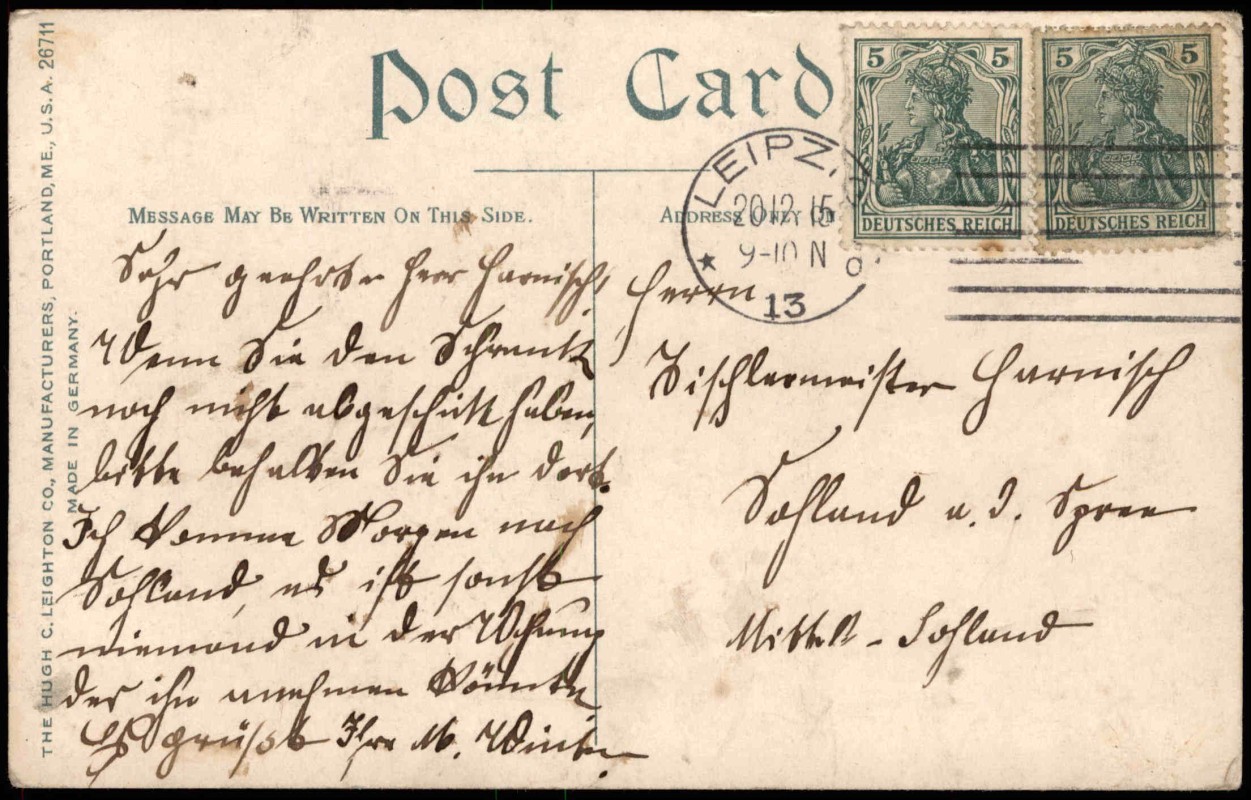 THE HUGH C. LEIGHTON CO., MANUFACTURERS, PORTLAND, ME., U.S.A. 26711
MADE IN GERMANY.
Post Card
MESSAGE MAY BE WRITTEN ON THIS SIDE.
ADDRESS ONLY ON
5 5
DEUTSCHES REICH
5 5
DEUTSCHES REICH
LEIPZIG
20 12 15
9-10 N
13
Sehr geehrter Herr Harnisch,
Wenn Sie den Schrank
noch nicht abgeschickt haben,
bitte behalten Sie ihn dort.
Ich komme Morgen nach
Sohland, es ist sonst
niemand in der Wohnung
der ihn annehmen könnte
Es grüsst Ihre M. Winter.
Herrn
Tischlermeister Harnisch
Sohland a. d. Spree
Mittel-Sohland